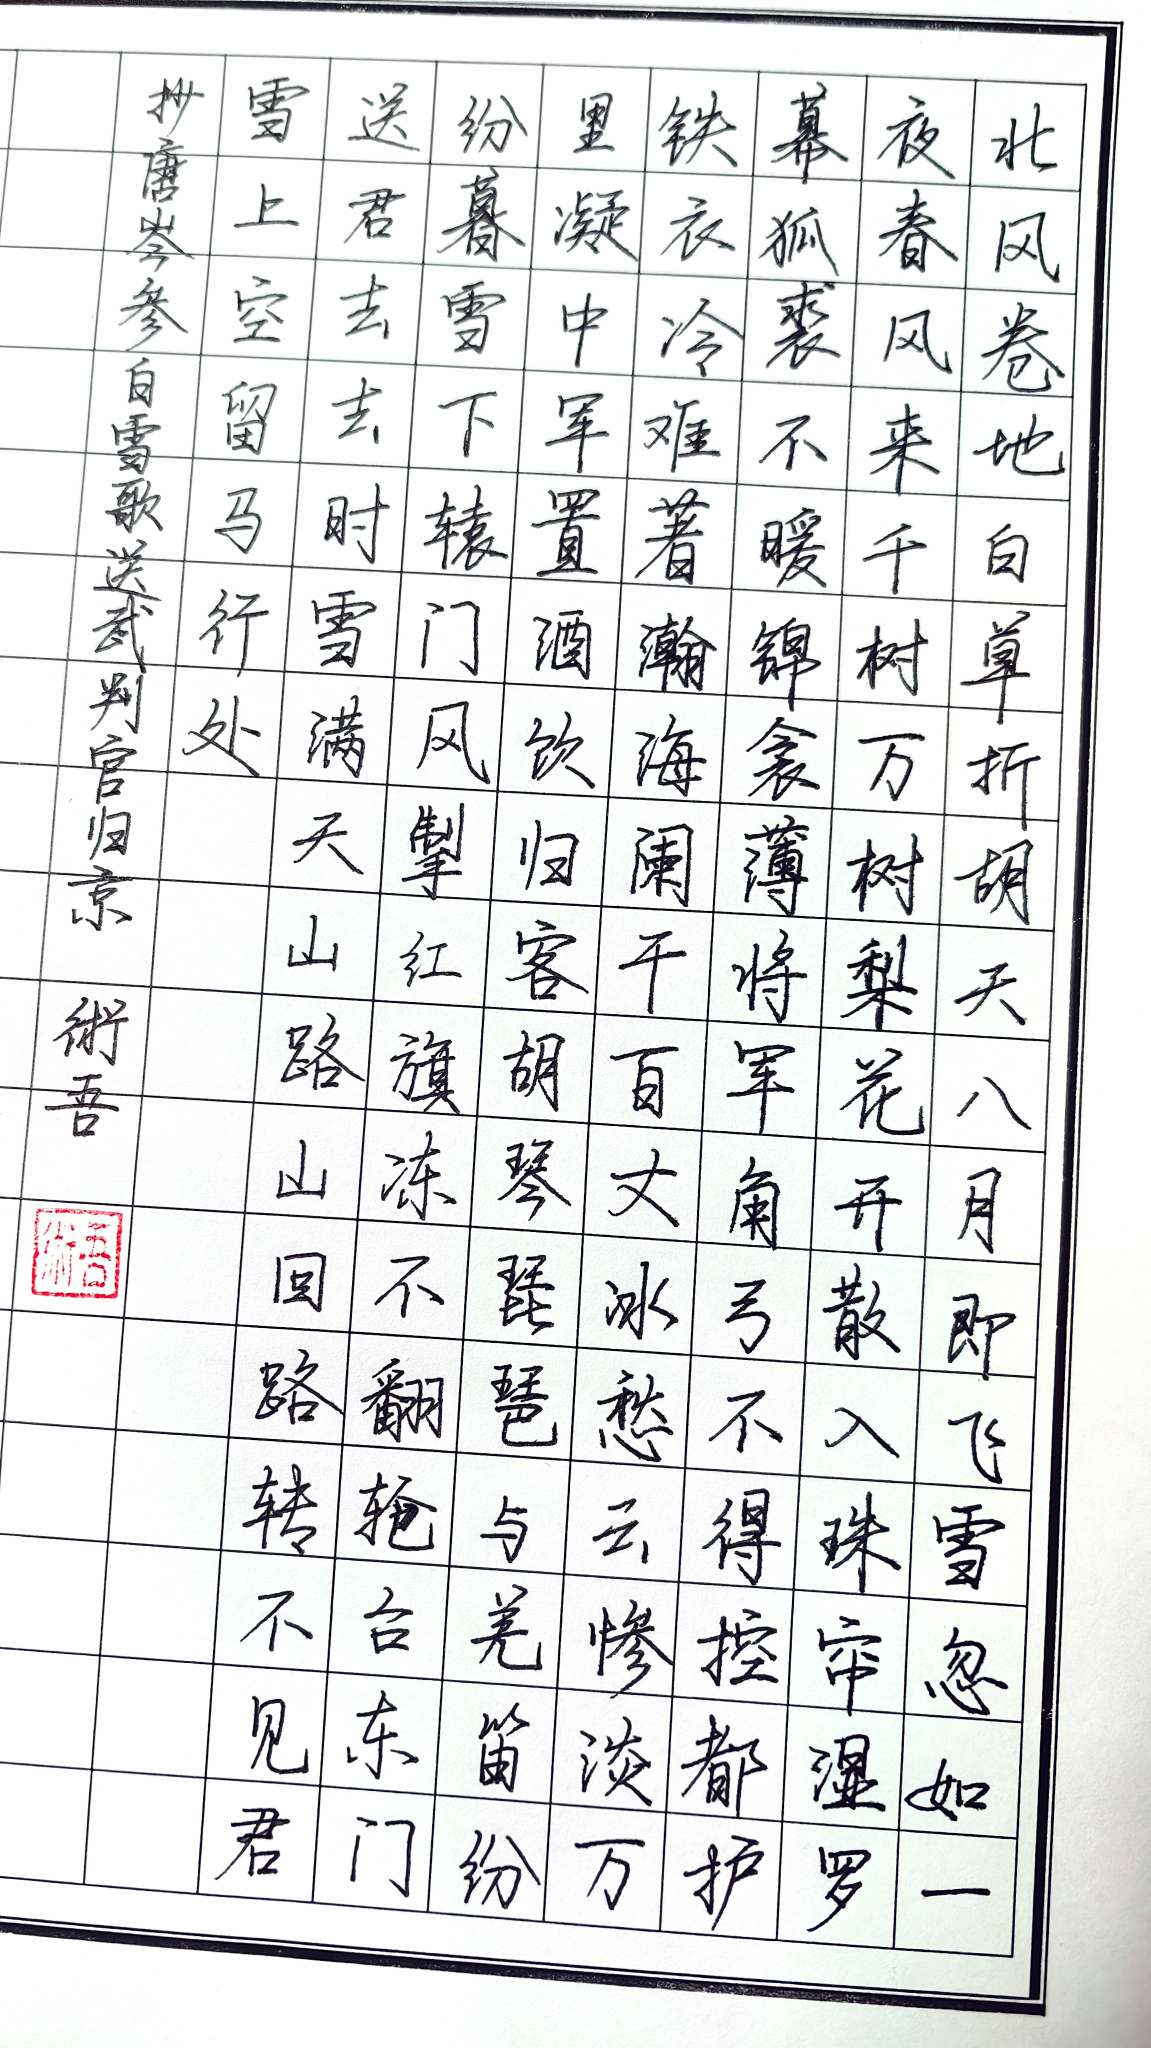 北风卷地白草折胡天八月即飞雪忽如一
夜春风来千树万树梨花开散入珠帘湿罗
幕狐裘不暖锦衾薄将军角弓不得控都护
铁衣冷难著瀚海阑干百丈冰愁云惨淡万
里凝中军置酒饮归客胡琴琵琶与羌笛纷
纷暮雪下辕门风掣红旗冻不翻轮台东门
送君去去时雪满天山路山回路转不见君
雪上空留马行处
抄唐岑参白雪歌送武判官归京 術吾
吾術